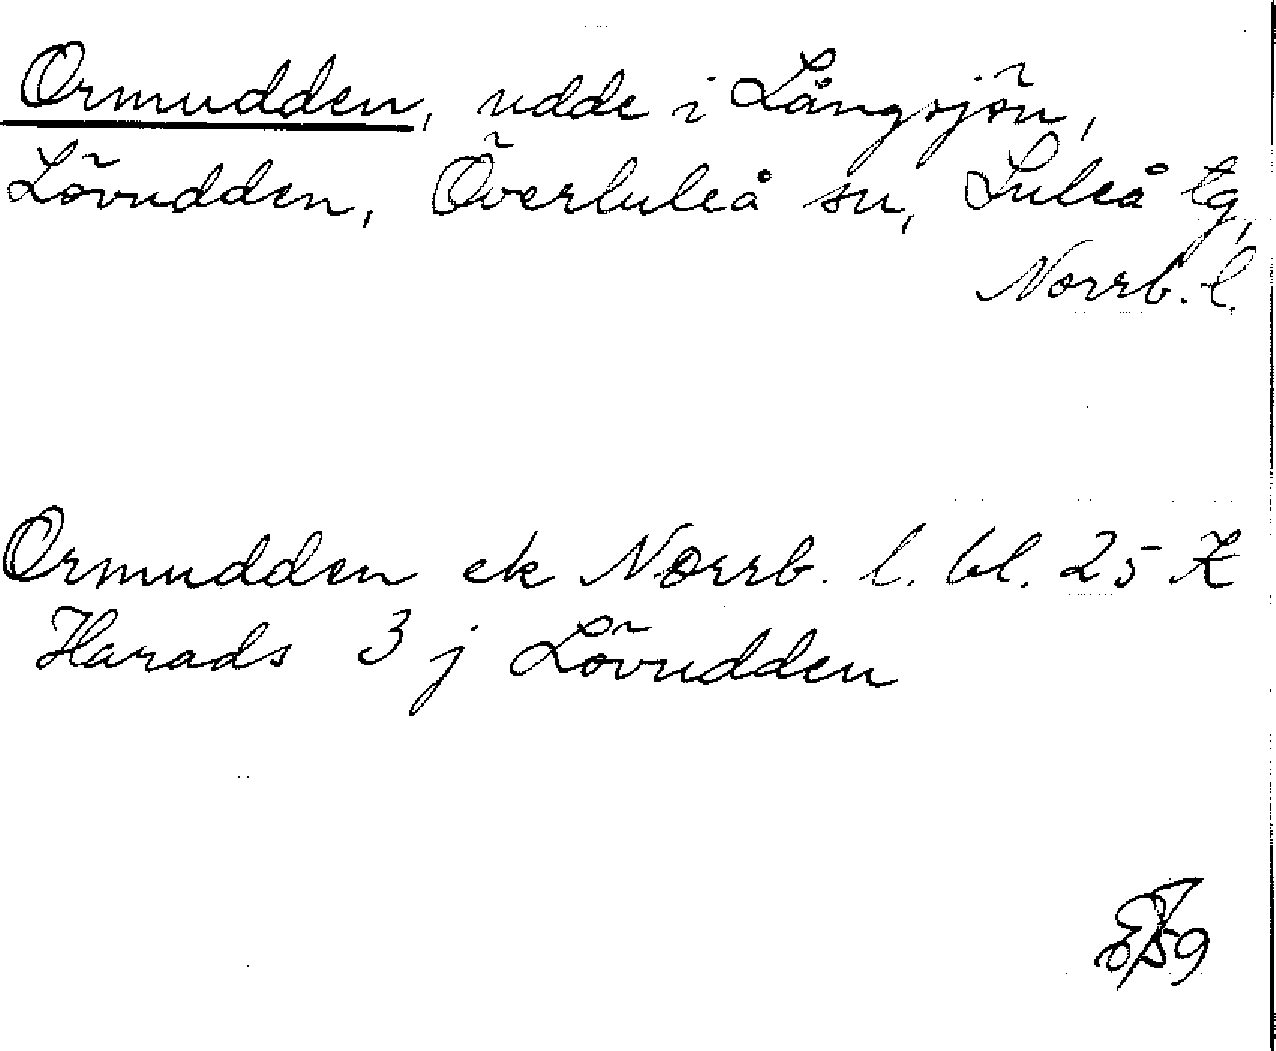 Ormudden, udde i Långsjön,
Lövudden, Överluleå sn, Luleå tg,
Norrb. l.
Ormudden ek Norrb. l. bl. 25 K
Harads 3 j Lövudden
59